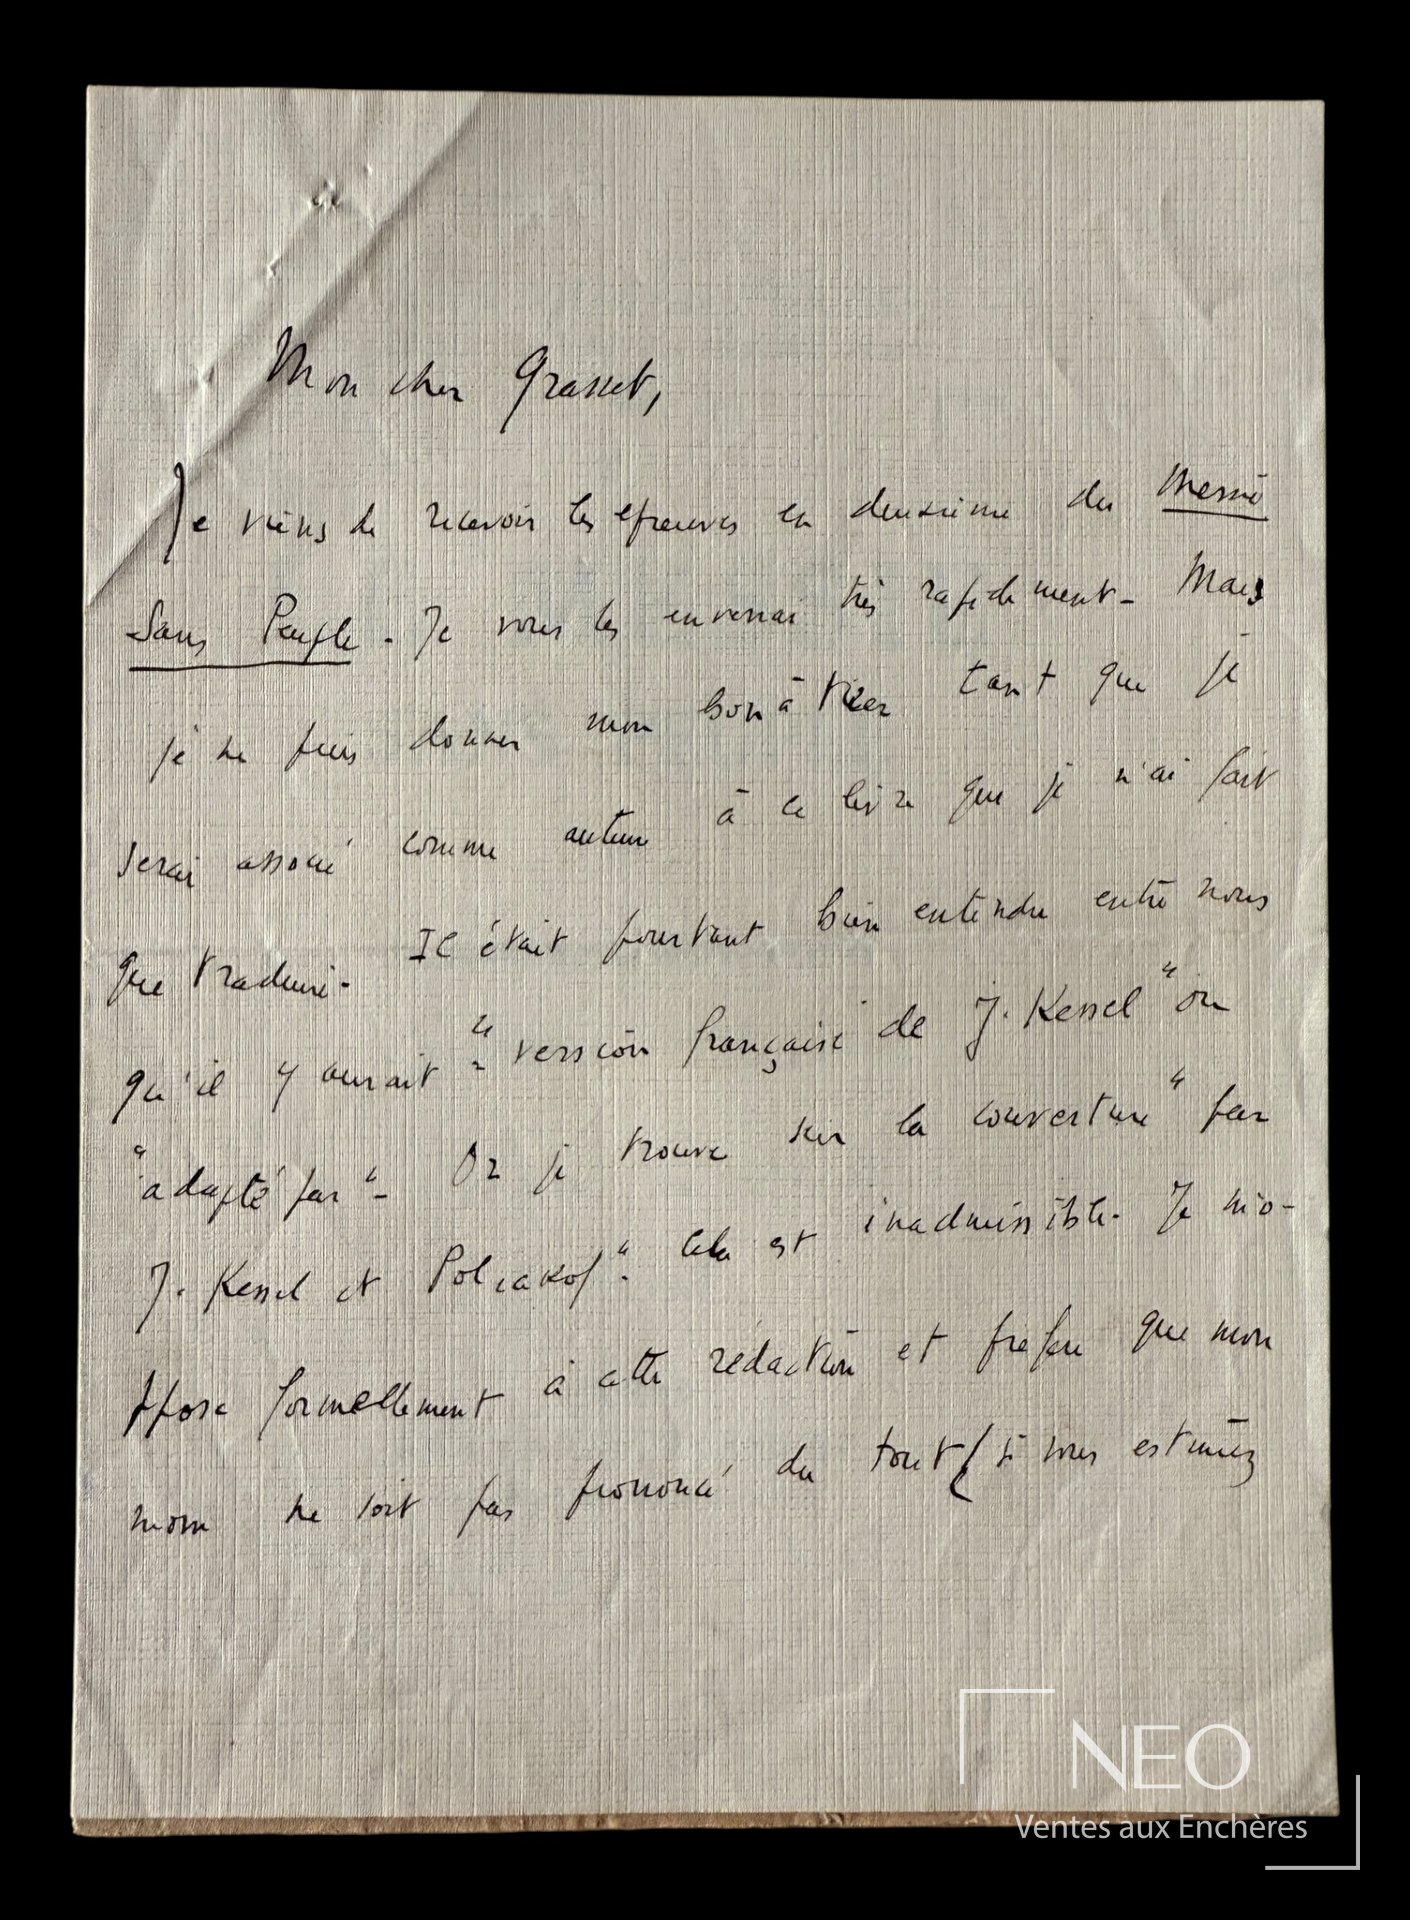 Mon cher Grasset,
Je viens de recevoir les epreuves en deuxième du Messie
Sans Peuple - Je vous les enverrai très rapidement - Mais
je ne puis donner mon bon à tirer tant que je
serai associé comme auteur à ce livre que je n'ai fait
que traduire - Il était pourtant bien entendu entre nous
qu'il y aurait : "version française de J. Kessel" ou
"adapté par" - Or je trouve sur la couverture "par
J. Kessel et Poliakof". Cela est inadmissible - Je m'o-
ppose formellement à cette rédaction et préfère que mon
nom ne soit pas prononcé du tout (si vous estimiez
NEO
Ventes aux Enchères